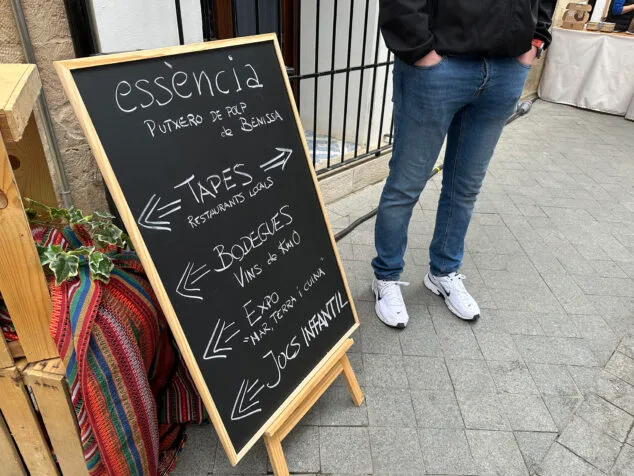 essència
PUTXERO DE POLP
de BENISSA
TAPES
RESTAURANTS LOCALS
BODEGUES
VINS de KM0
EXPO
"MAR, TERRA i CUINA"
JOCS INFANTIL